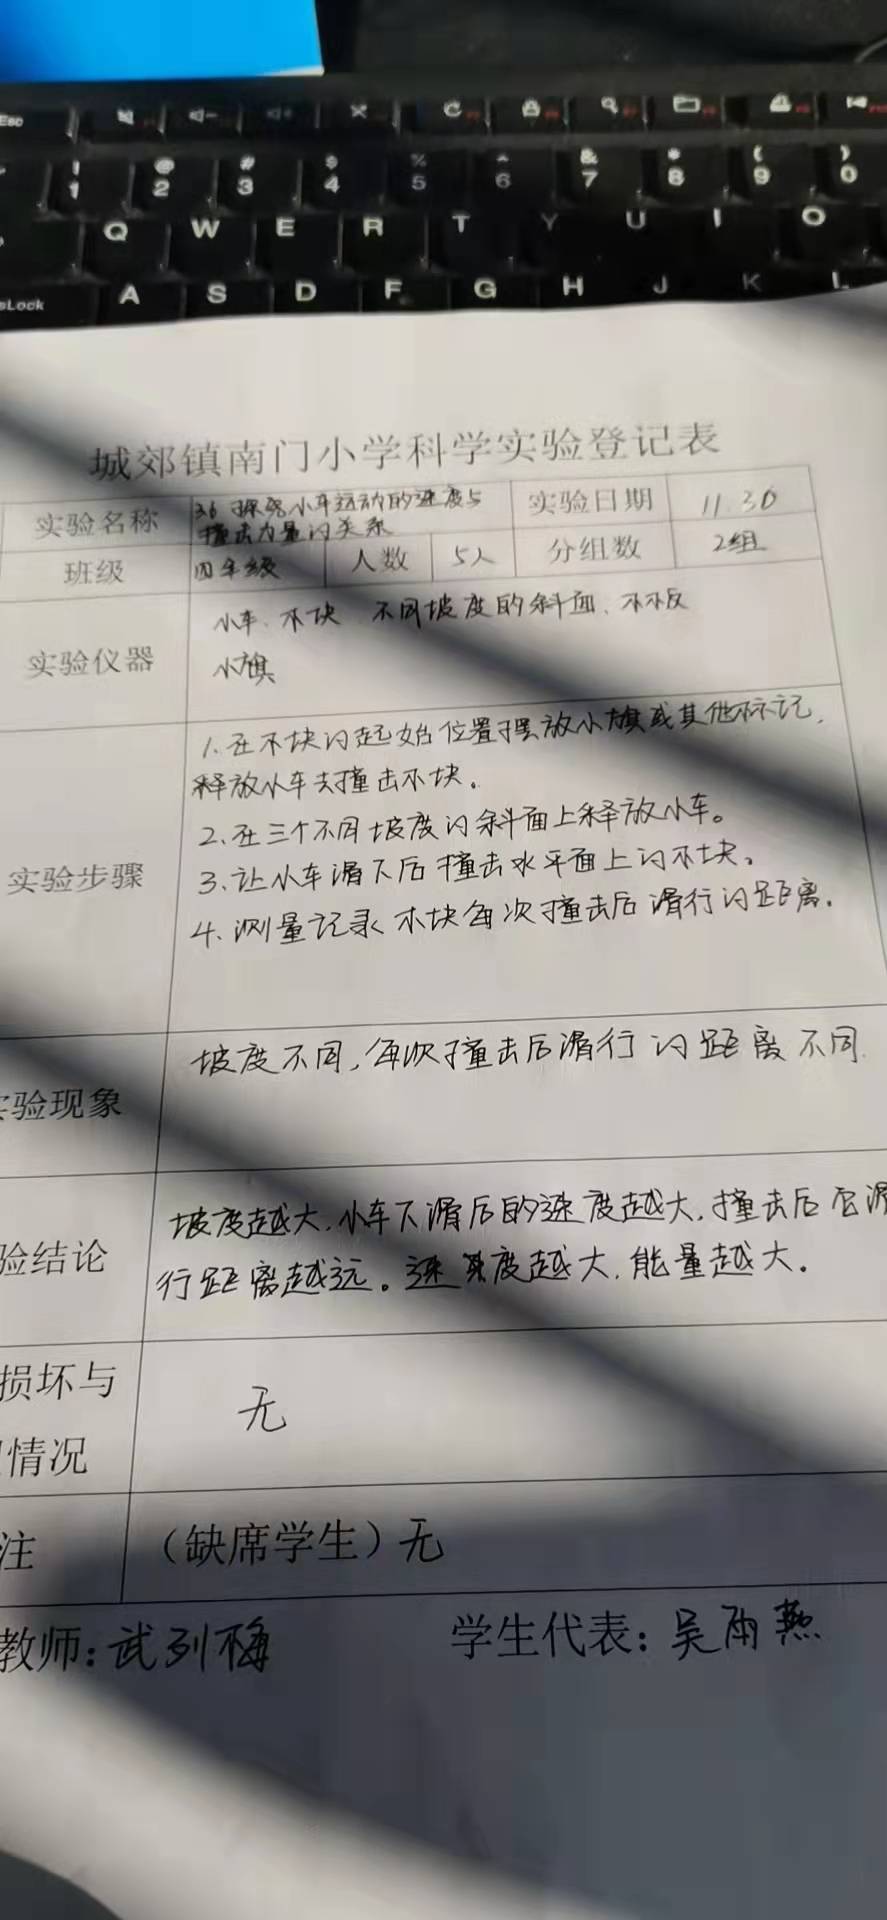 Esc
! @ # $ % ^ & * ( )
1 2 3 4 5 6 7 8 9 0
Q W E R T Y U I O
sLock A S D F G H J K L
城郊镇南门小学科学实验登记表
实验名称 36 探究小车运动的速度与
撞击力量的关系
实验日期 11.30
班级 四年级 人数 5人 分组数 2组
实验仪器
小车、木块、不同坡度的斜面、木板
小旗
实验步骤
1.在木块的起始位置摆放小旗或其他标记,
释放小车去撞击木块。
2、在三个不同坡度的斜面上释放小车。
3、让小车滑下后撞击水平面上的木块。
4、测量记录木块每次撞击后滑行的距离。
验现象
坡度不同,每次撞击后滑行的距离不同
验结论
坡度越大,小车下滑后的速度越大,撞击后它滑
行距离越远。速度越大,能量越大。
损坏与
情况
无
注 (缺席学生)无
教师:武列梅 学生代表:吴雨燕